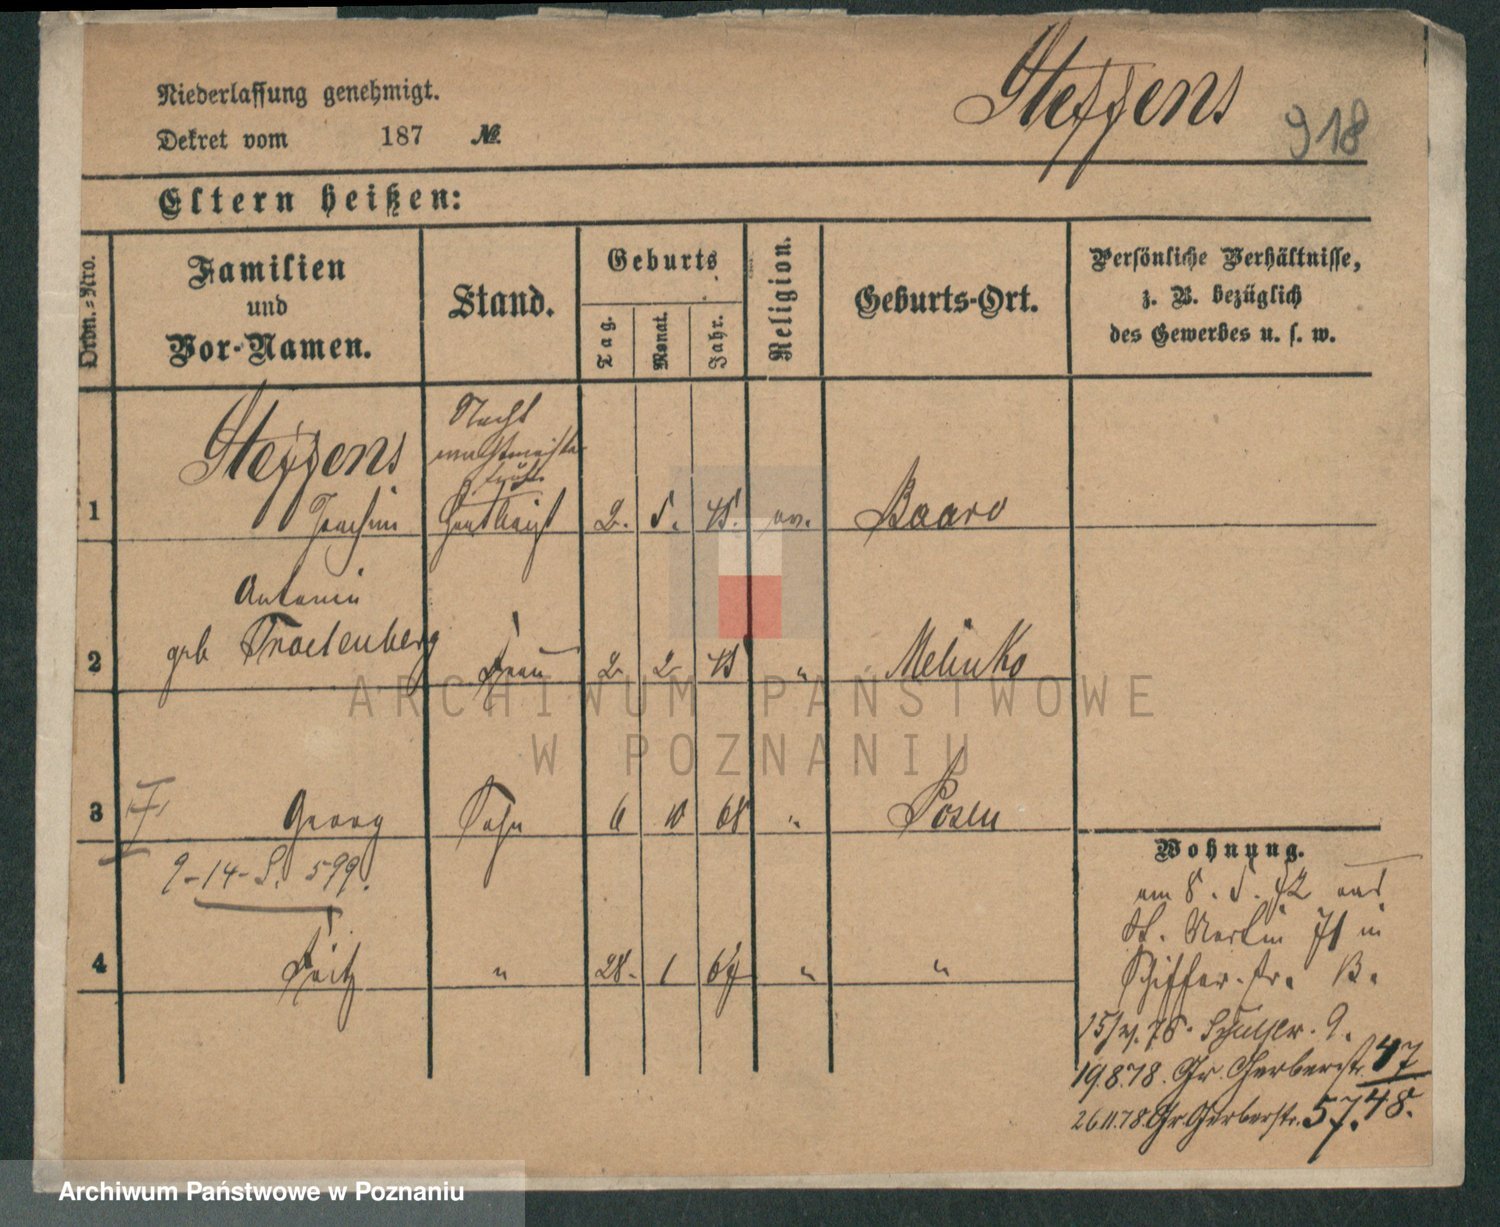 Niederlassung genehmigt.
Dekret vom 187 №.
Steffens
918
Eltern heißen:
Ordn.-Nro.
Familien
und
Vor-Namen.
Stand.
Geburts
Tag.
Monat.
Jahr.
Religion.
Geburts-Ort.
Persönliche Verhältnisse,
z. B. bezüglich
des Gewerbes u. s. w.
Steffens
1 Joachim 2. 5. 45. ev. Baaro
Antonin
2 geb Troetenberg Frau 2 2 45 " Melinko
3 Georg Sohn 6 10 68 " Posen
9-14-S. 599.
4 Fritz " 28. 1 67 " "
Wohnung.
am 8. 5. 72 aus
St. Martin 71 in
Schiffer-str. 13.
15/ 75. 9.
19.8.78. Gr. Gerberstr. 47
26.11.78. Gr Gerberstr. 57. 48.
ARCHIWUM PAŃSTWOWE
W POZNANIU
Archiwum Państwowe w Poznaniu